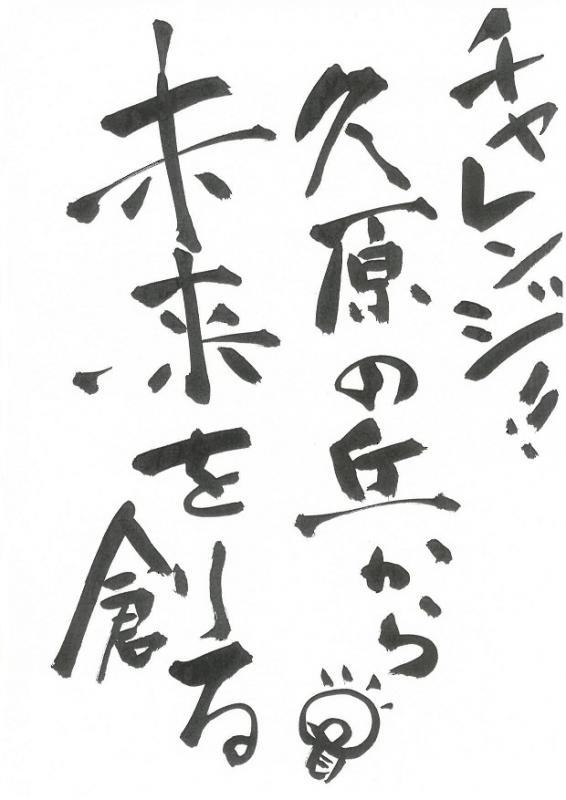 チャレンジ!!
久原の丘から
未来を創る